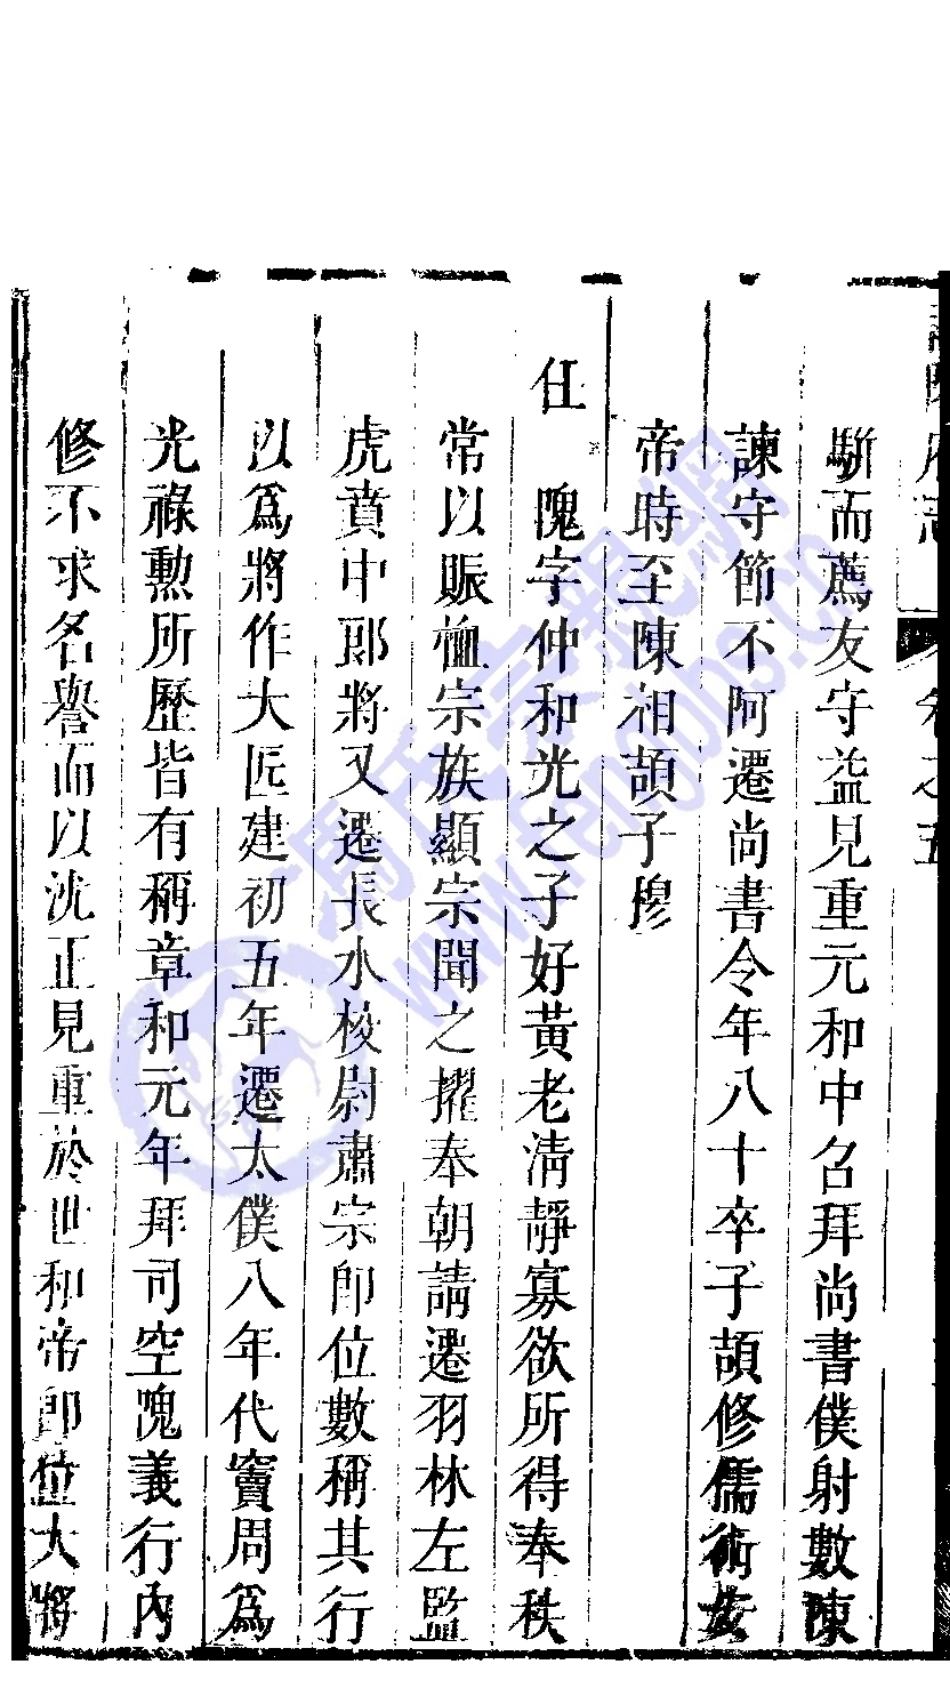 府志　卷之五
駢而薦友守益見重元和中召拜尚書僕射數陳
諫守節不阿遷尚書令年八十卒子頡修儒術安
帝時至陳相頡子穆
任　隗字仲和光之子好黃老清靜寡欲所得奉秩
常以賑恤宗族顯宗聞之擢奉朝請遷羽林左監
虎賁中郎將又遷長水校尉肅宗即位數稱其行
以爲將作大匠建初五年遷太僕八年代竇周爲
光祿勲所歷皆有稱章和元年拜司空隗義行內
修不求名譽而以沈正見重於世和帝即位大將
www.fengbs.cn